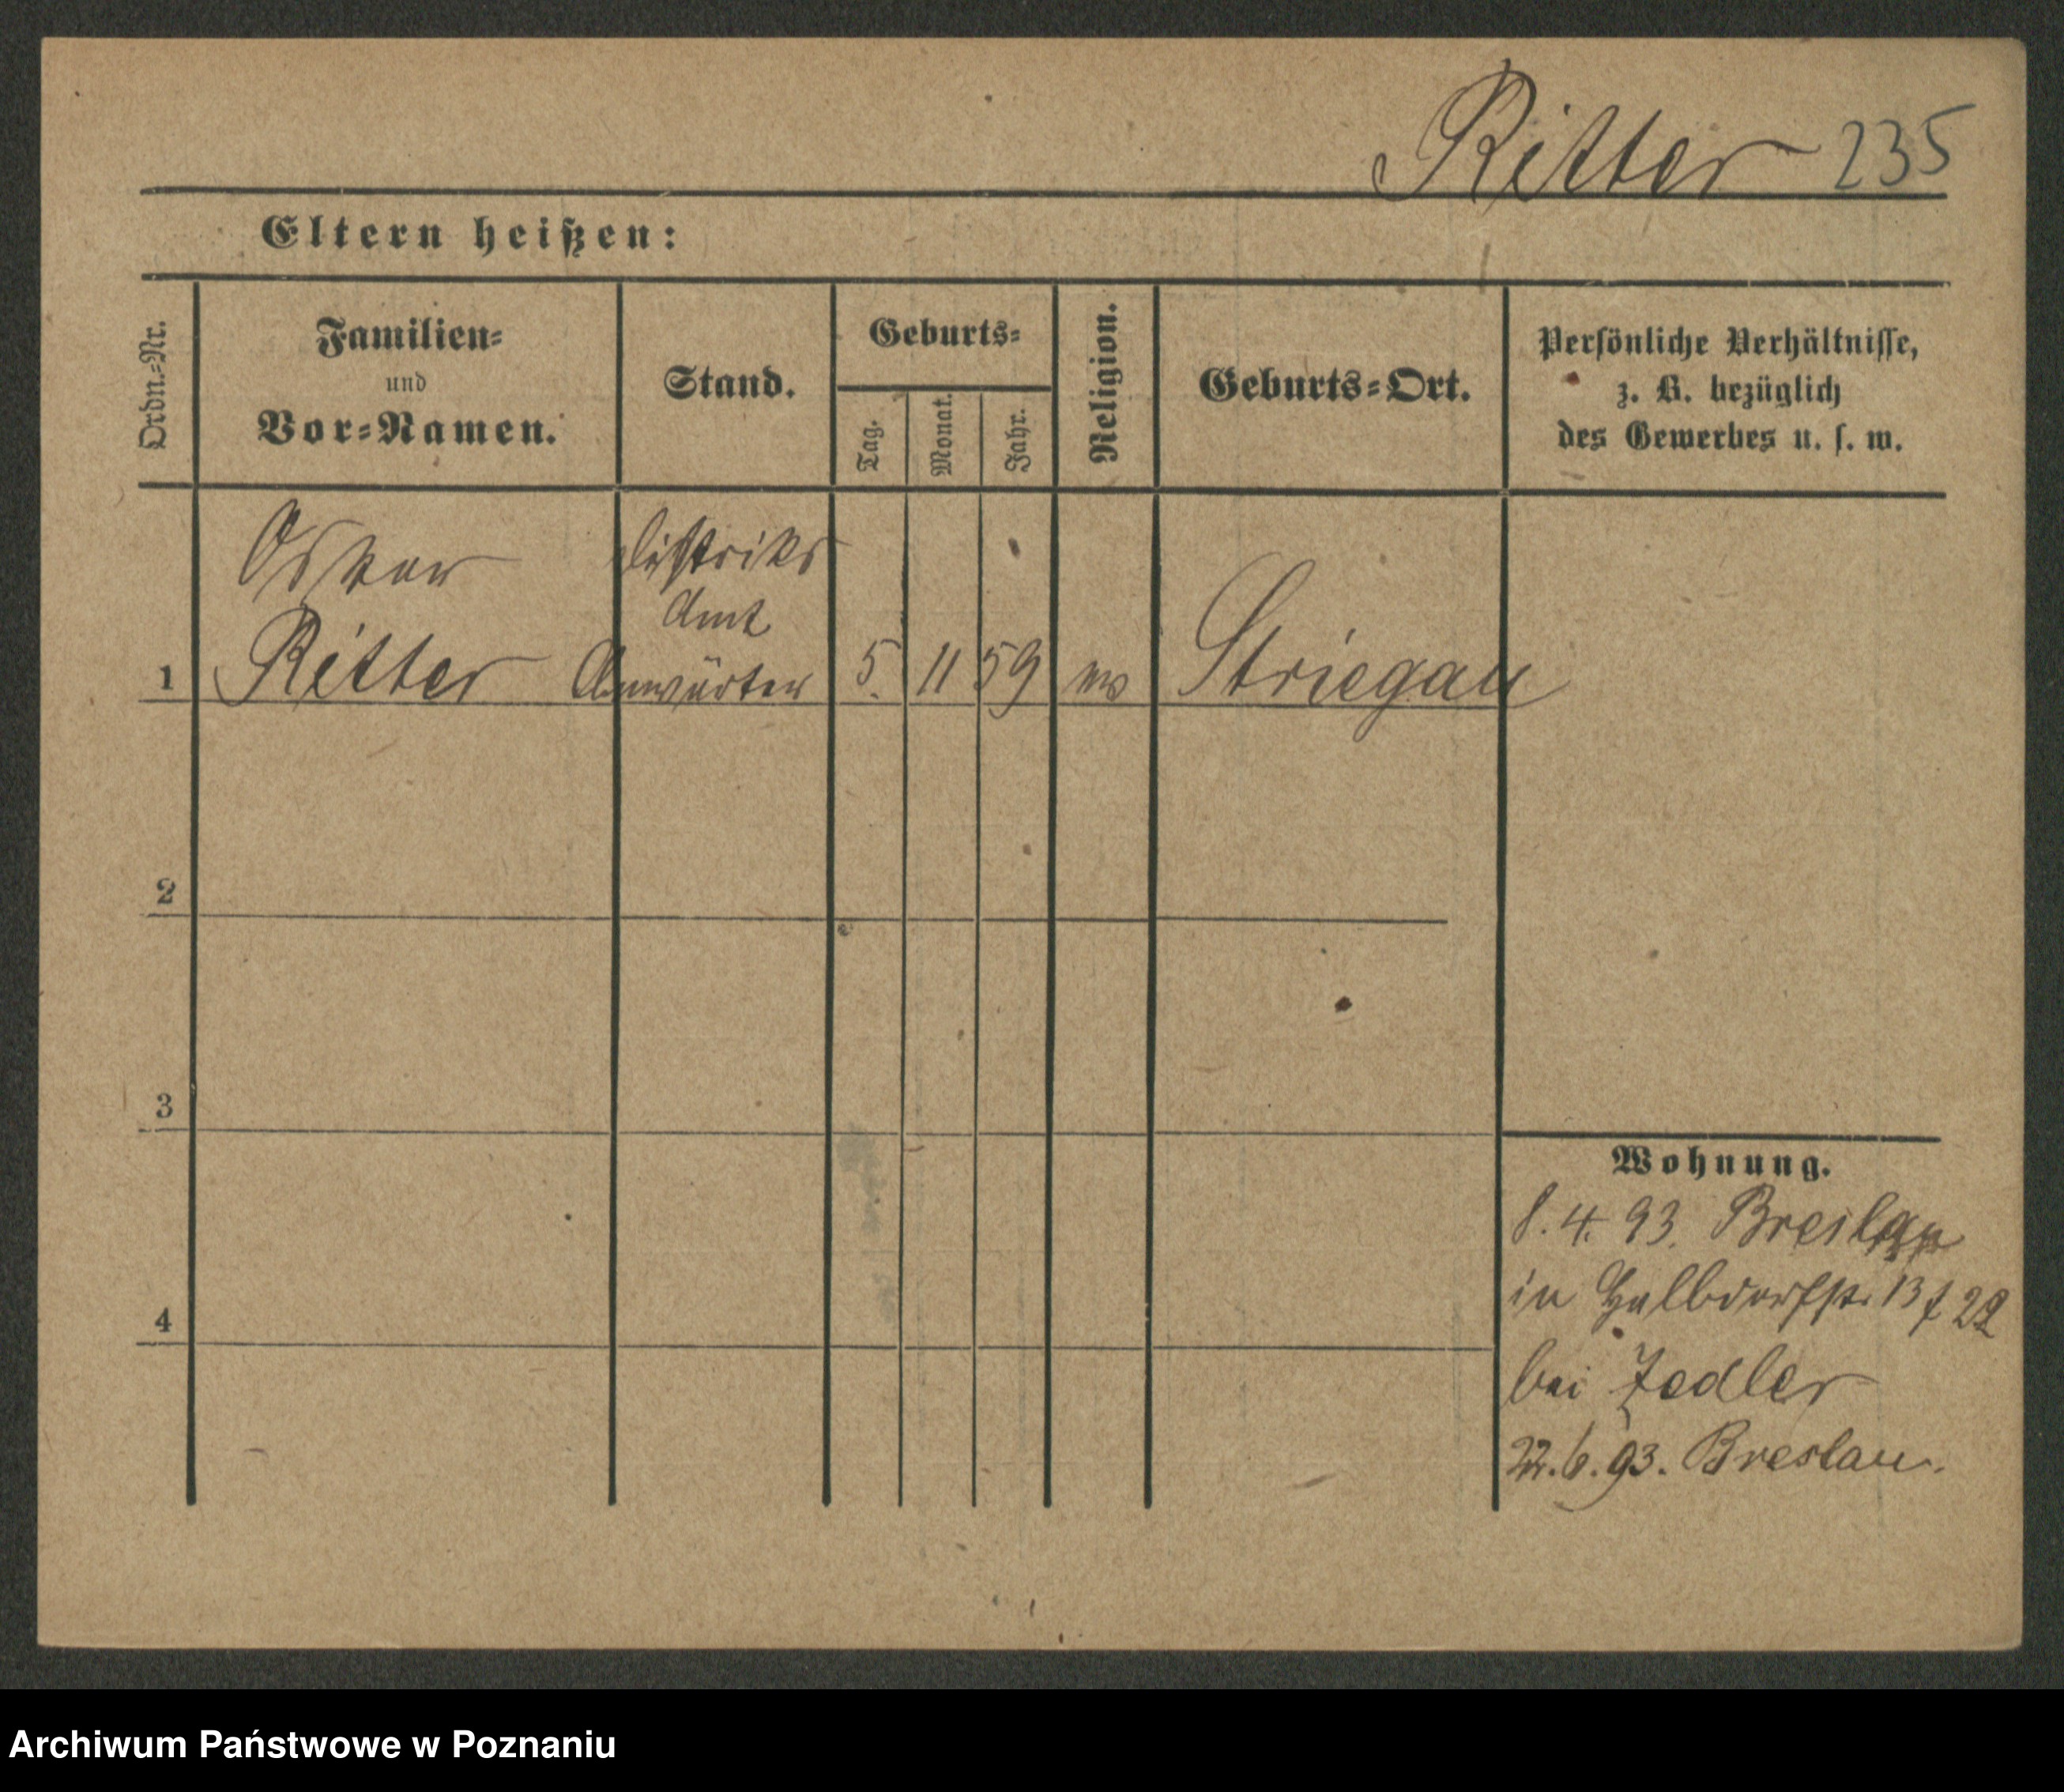 Ritter 235
Eltern heißen:
Ordn.-Nr.
Familien-
und
Vor-Namen.
Stand.
Geburts-
Tag.
Monat.
Jahr.
Religion.
Geburts-Ort.
Persönliche Verhältnisse,
z. B. bezüglich
des Gewerbes u. s. w.
Oskar
Distrikts
Amt
1 Ritter Anwärter 5. 11 59 ev Striegau
2
3
4
Wohnung.
8. 4. 93. Breslau
in Halbdorfstr. 13
bei Zedler
22. 6. 93. Breslau.
Archiwum Państwowe w Poznaniu